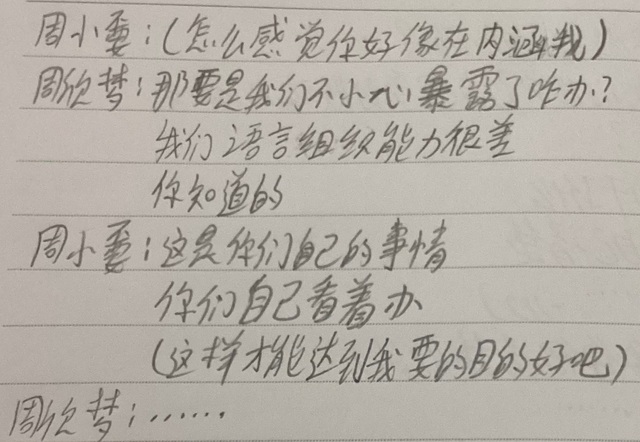 周小要：（怎么感觉你好像在内涵我）
周欣梦：那要是我们不小心暴露了咋办？
我们语言组织能力很差
你知道的
周小要：这是你们自己的事情
你们自己看着办
（这样才能达到我要的目的好吧）
周欣梦：……